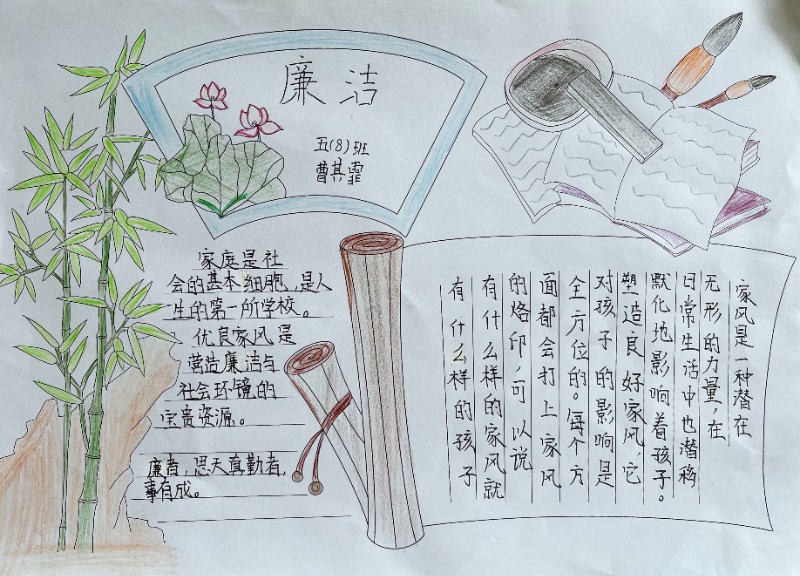 廉洁
五(8)班
曹其霏
家庭是社
会的基本细胞,是人
生的第一所学校。
优良家风是
营造廉洁与
社会环镜的
宝贵资源。
廉者,思天真勤者,
事有成。
家风是一种潜在
无形的力量,在
日常生活中也潜移
默化地影响着孩子。
塑造良好家风,它
对孩子的影响是
全方位的。每个方
面都会打上家风
的烙印,可以说
有什么样的家风就
有什么样的孩子